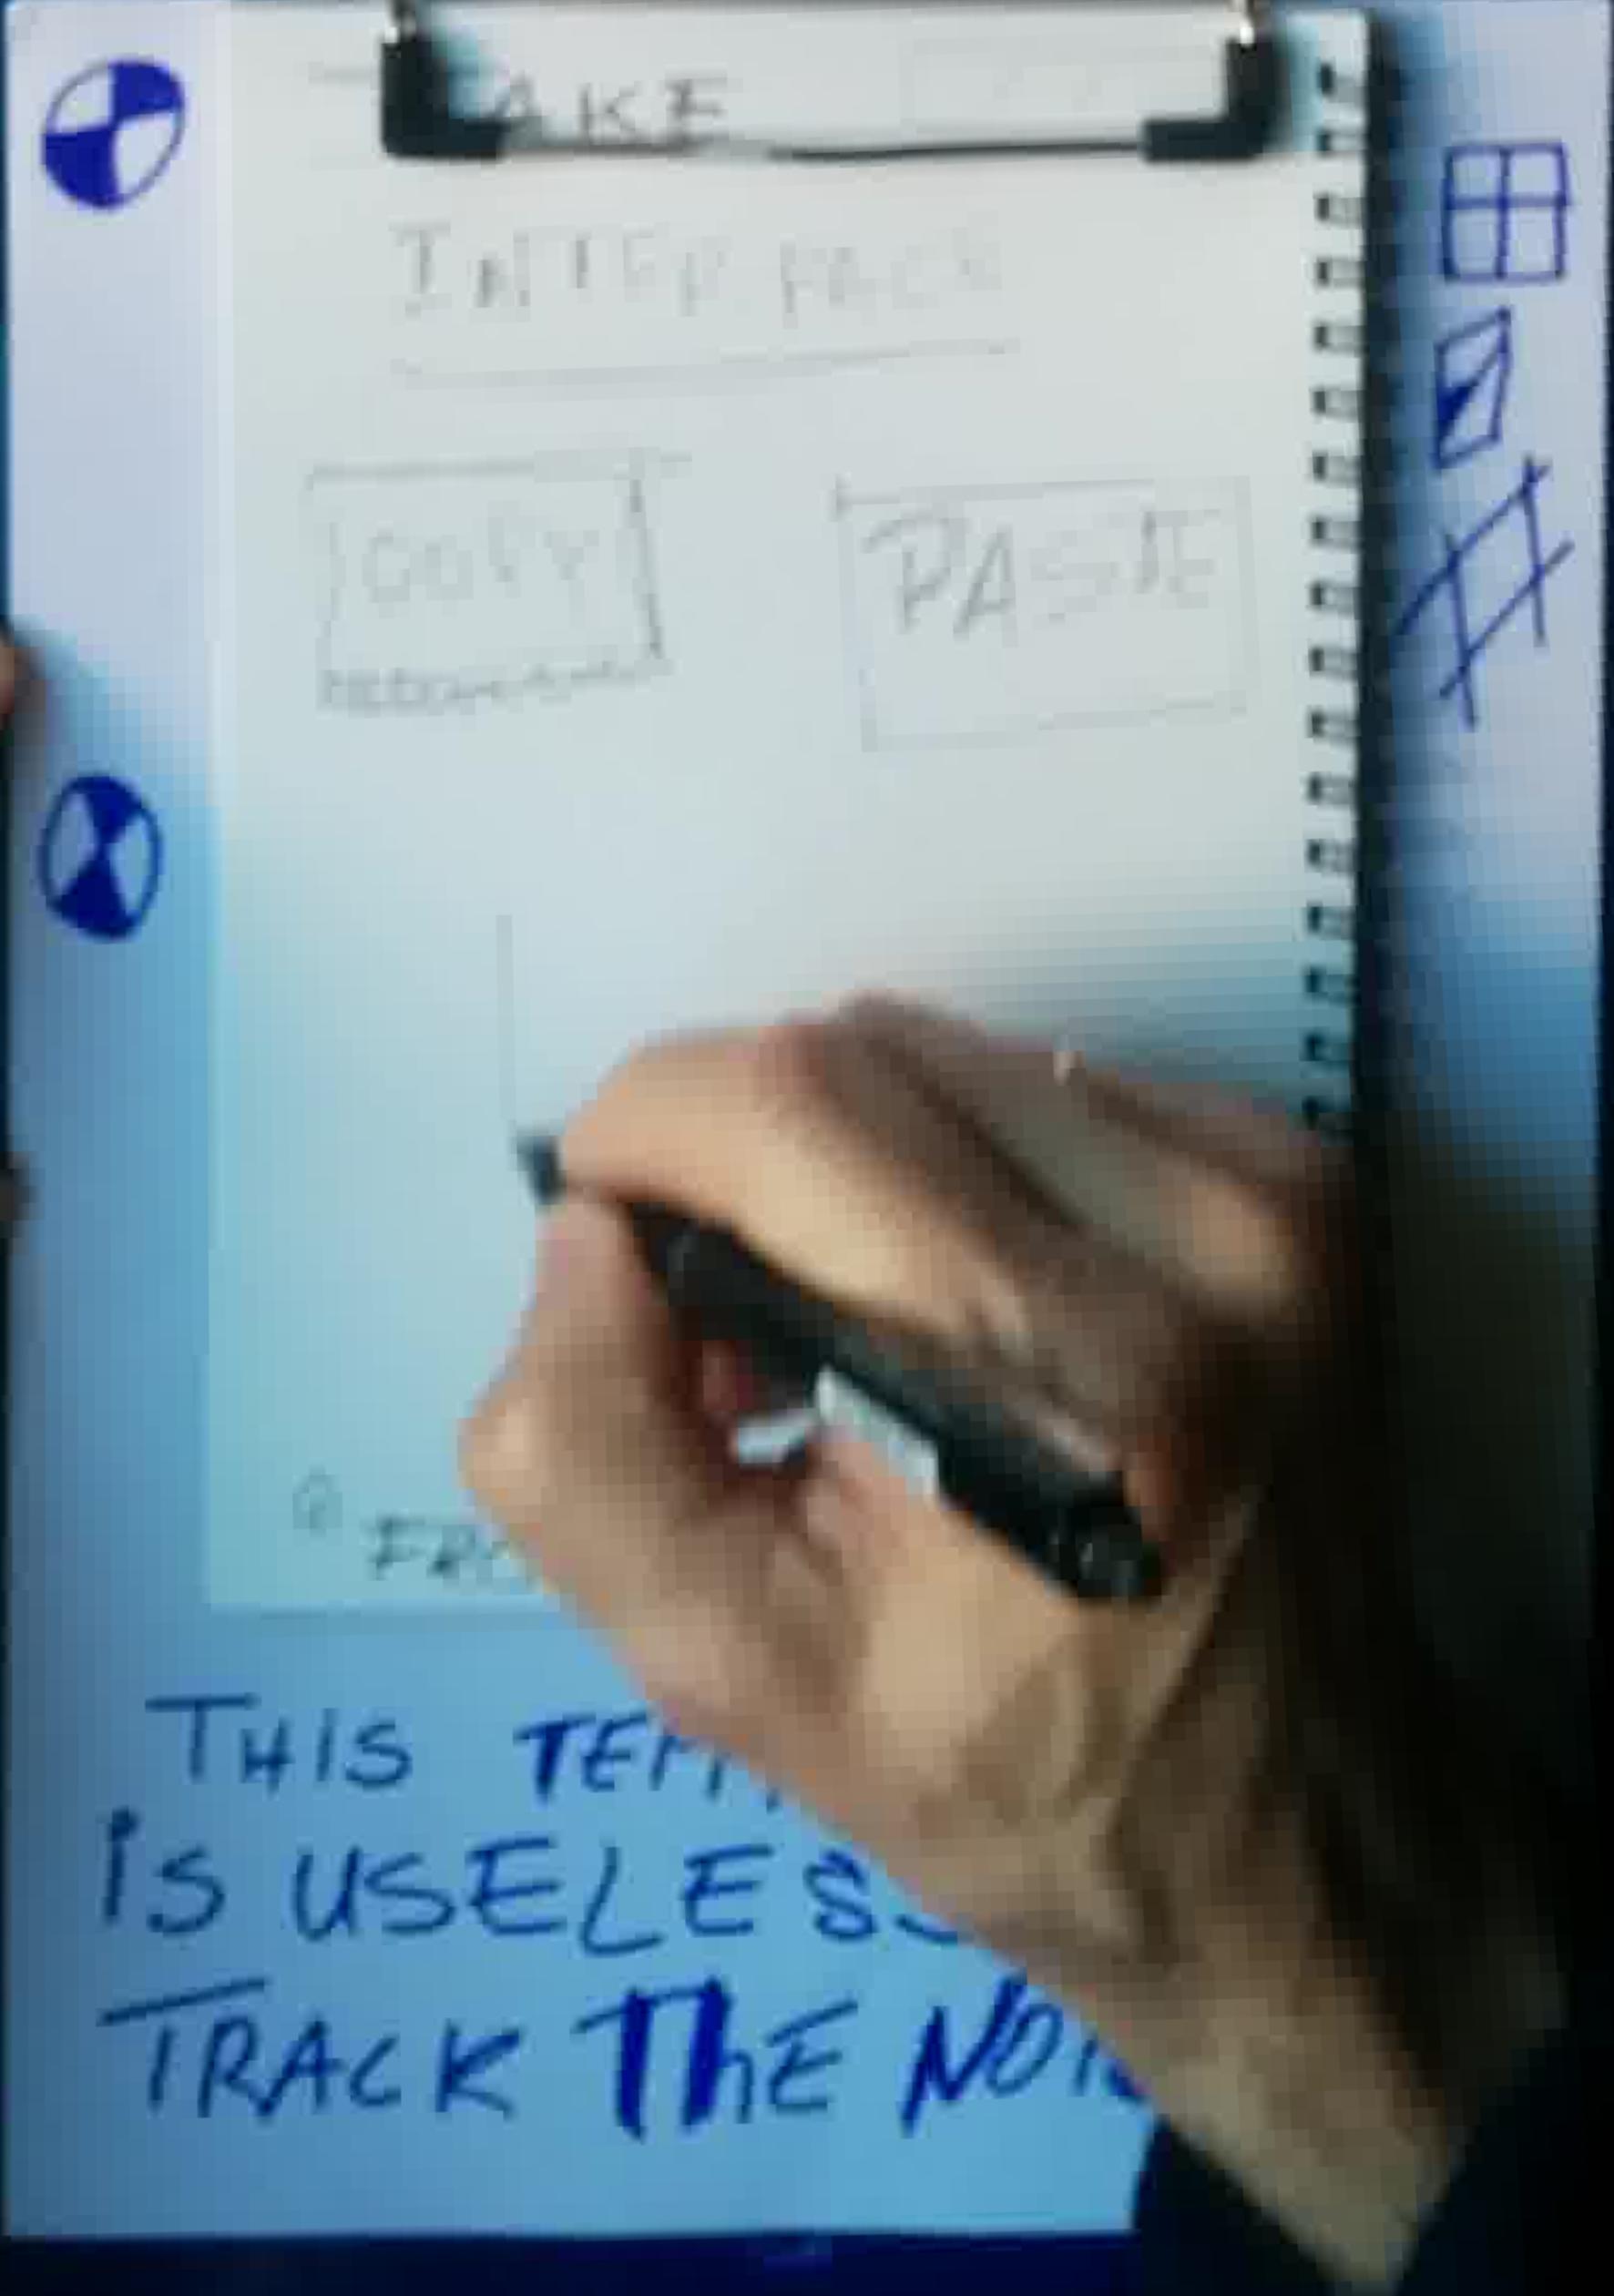 AKE
INTERFACE
COPY PASTE
THIS
IS USELESS
TRACK THE